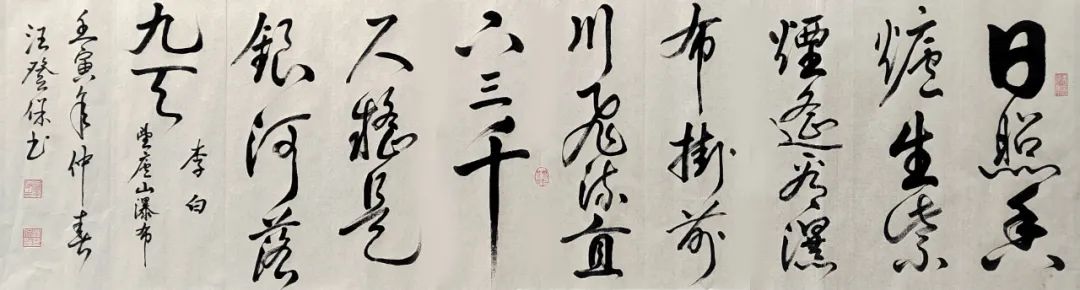 日照香
爐生紫
煙遙看瀑
布掛前
川飛流直
下三千
尺疑是
銀河落
九天
李白
望廬山瀑布
壬寅年仲春
汪登保书